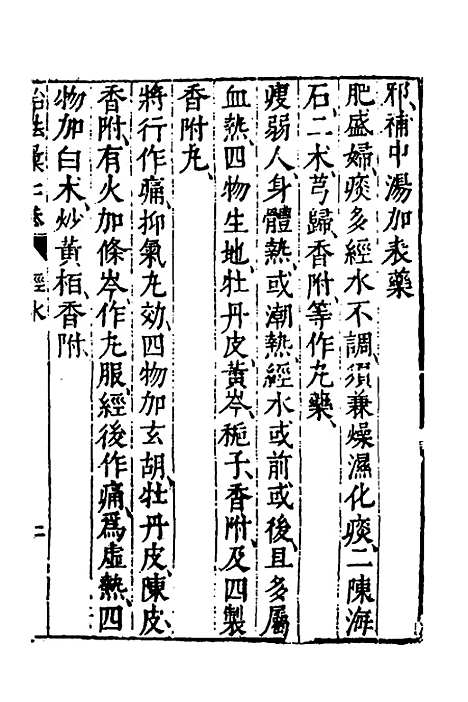 邪、補中湯加表藥
肥盛婦、痰多經水不調、須兼燥濕化痰、二陳海
石二术、芎歸、香附等作丸藥、
瘦弱人、身體熱、或潮熱、經水或前或後、且多屬
血熱、四物生地牡丹皮、黃岑、梔子、香附、及四製
香附丸、
將行作痛、抑氣丸効、四物加玄胡、牡丹皮、陳皮、
香附、有火加條岑、作丸服、經後作痛、爲虛熱、四
物加白术、炒黃栢、香附、
治法彙七卷 經水 二